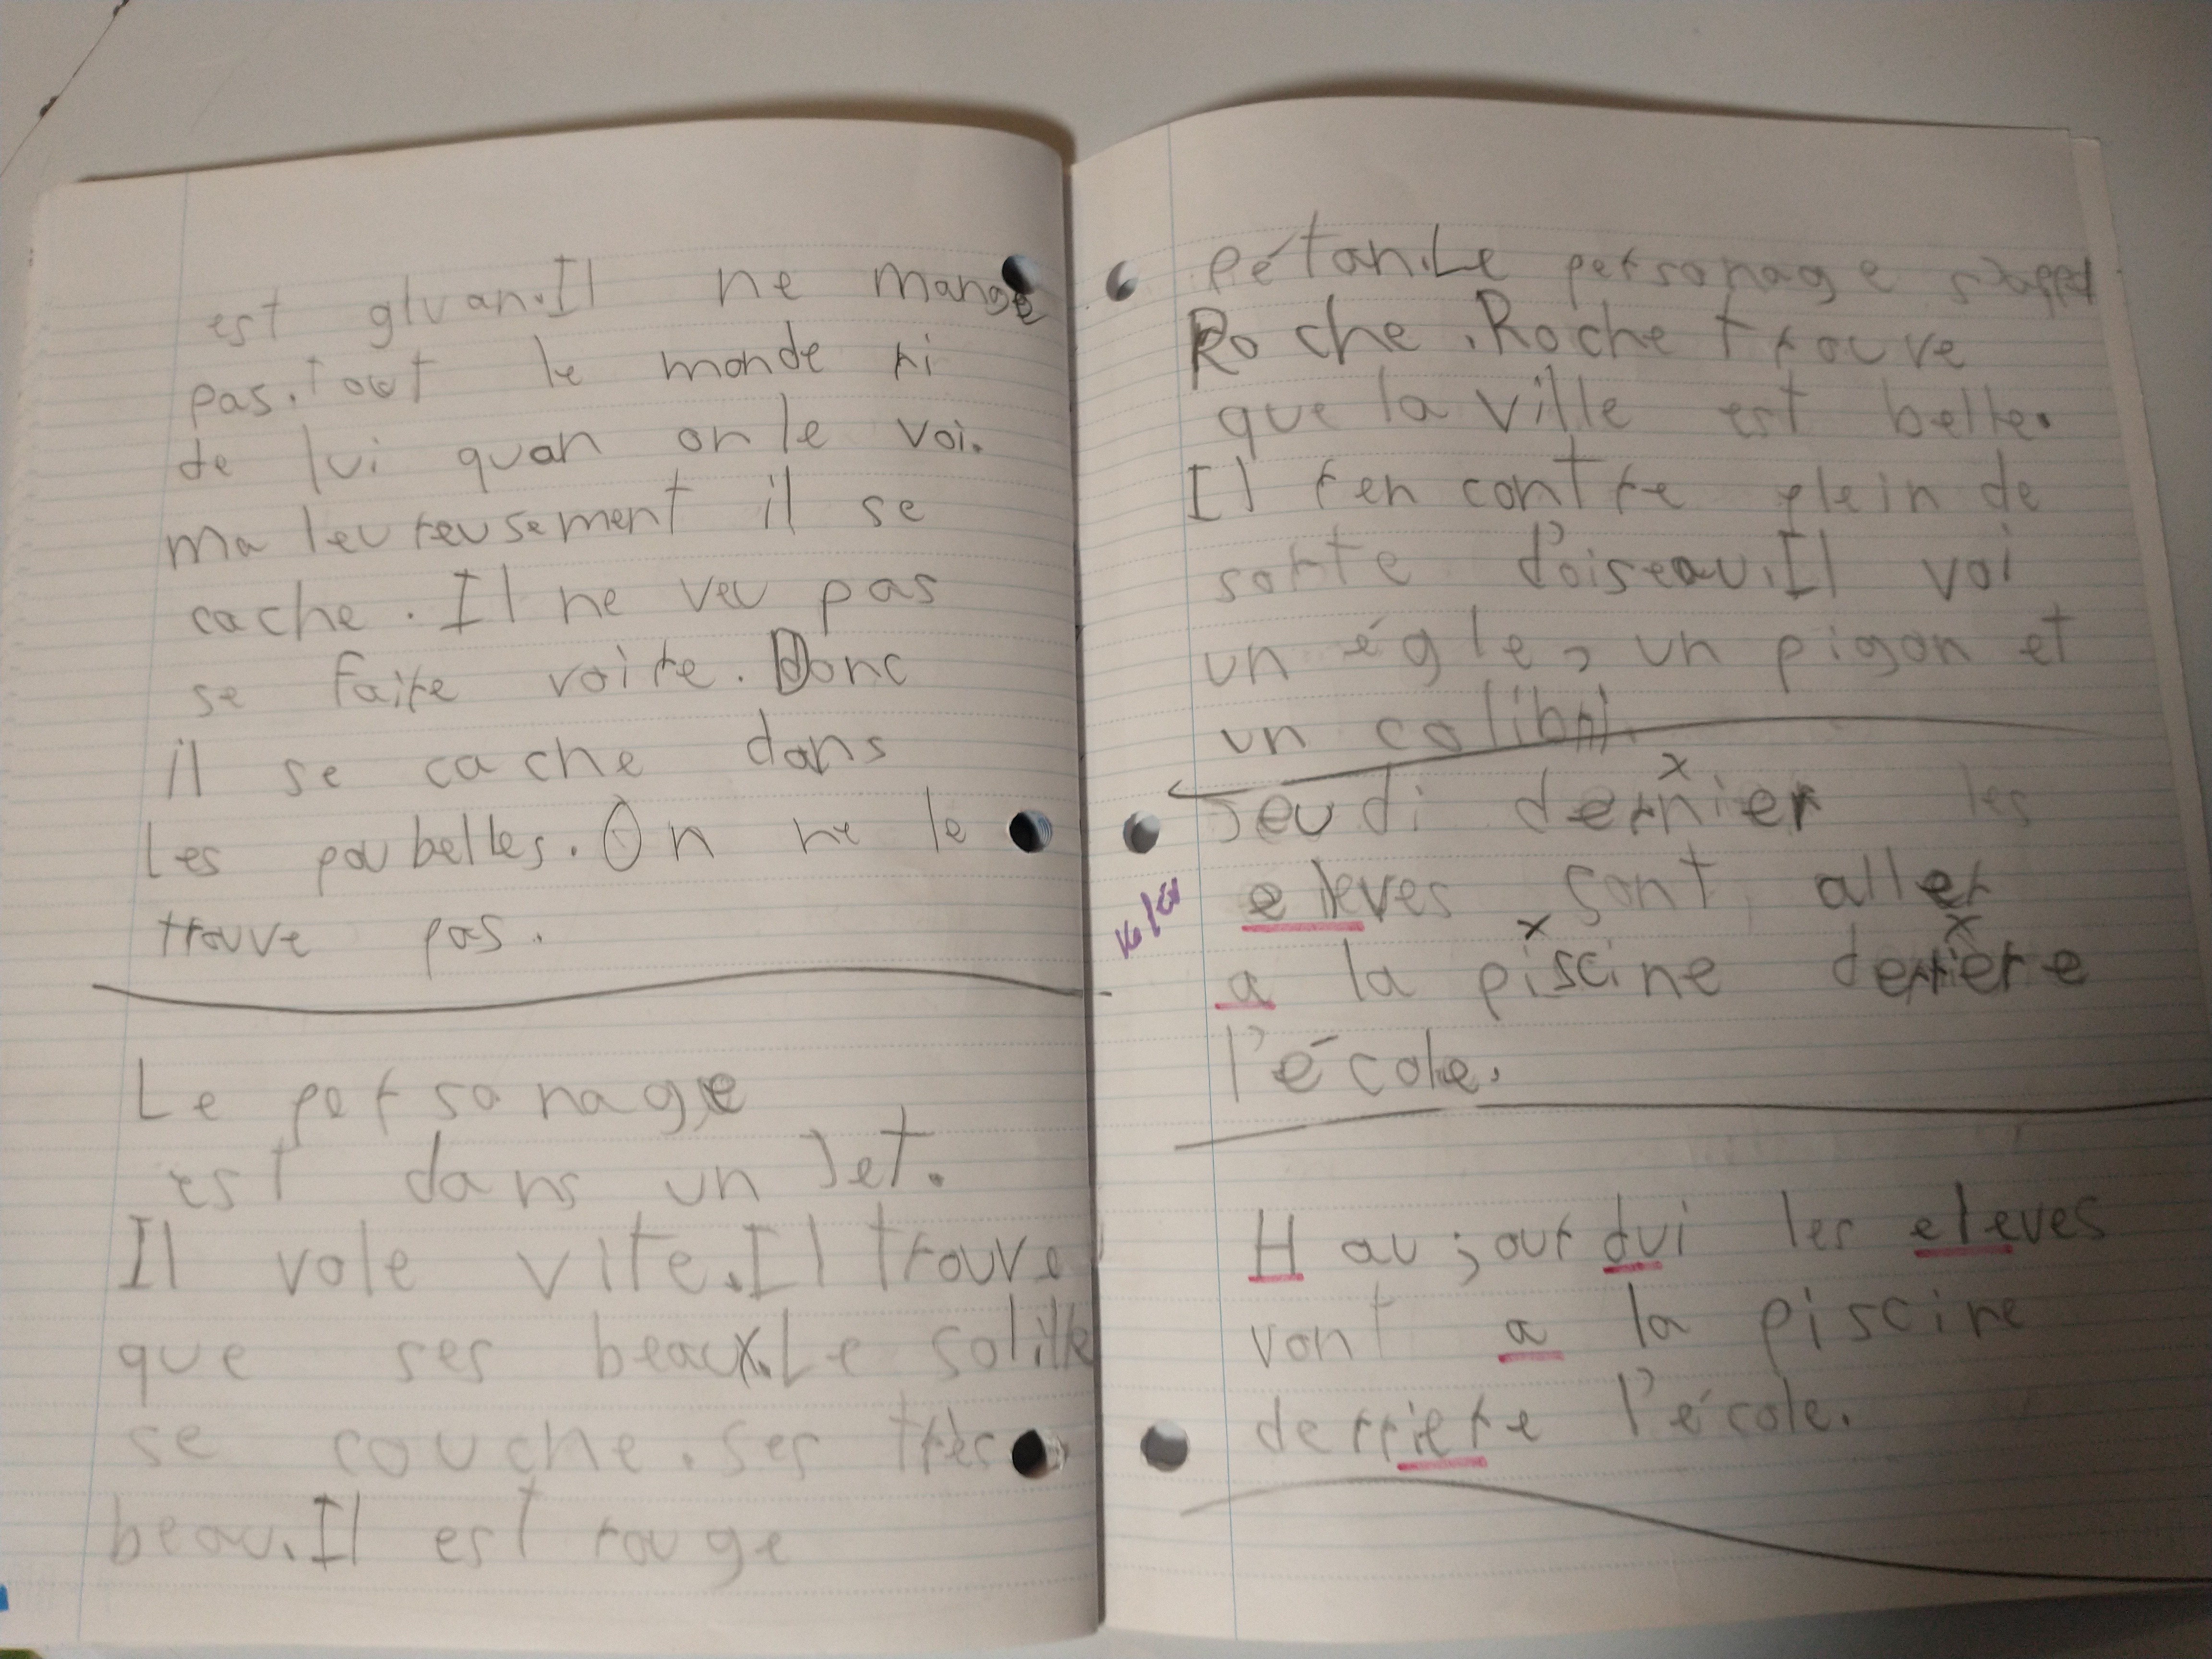 est gluan.Il ne mange
pas.tout le monde ri
de lui quan on le voi.
maleureusement il se
cache. Il ne veu pas
se faire voire. Donc
il se cache dans
les poubelles. On ne le
trouve pas.
Le personage
est dans un Jet.
Il vole vite.Il trouve
que ses beaux.Le
se couche. ses très
beau.Il est rouge
pétan.Le personage
Roche. Roche trouve
que la ville est belle.
Il rencontre plein de
sorte d'oiseau.Il voi
un égle, un pigon et
un colibri.
Jeudi dernier les
eleves sont aller
a la piscine derriere
l'école.
H aujourdui les eleves
vont a la piscine
derriere l'école.